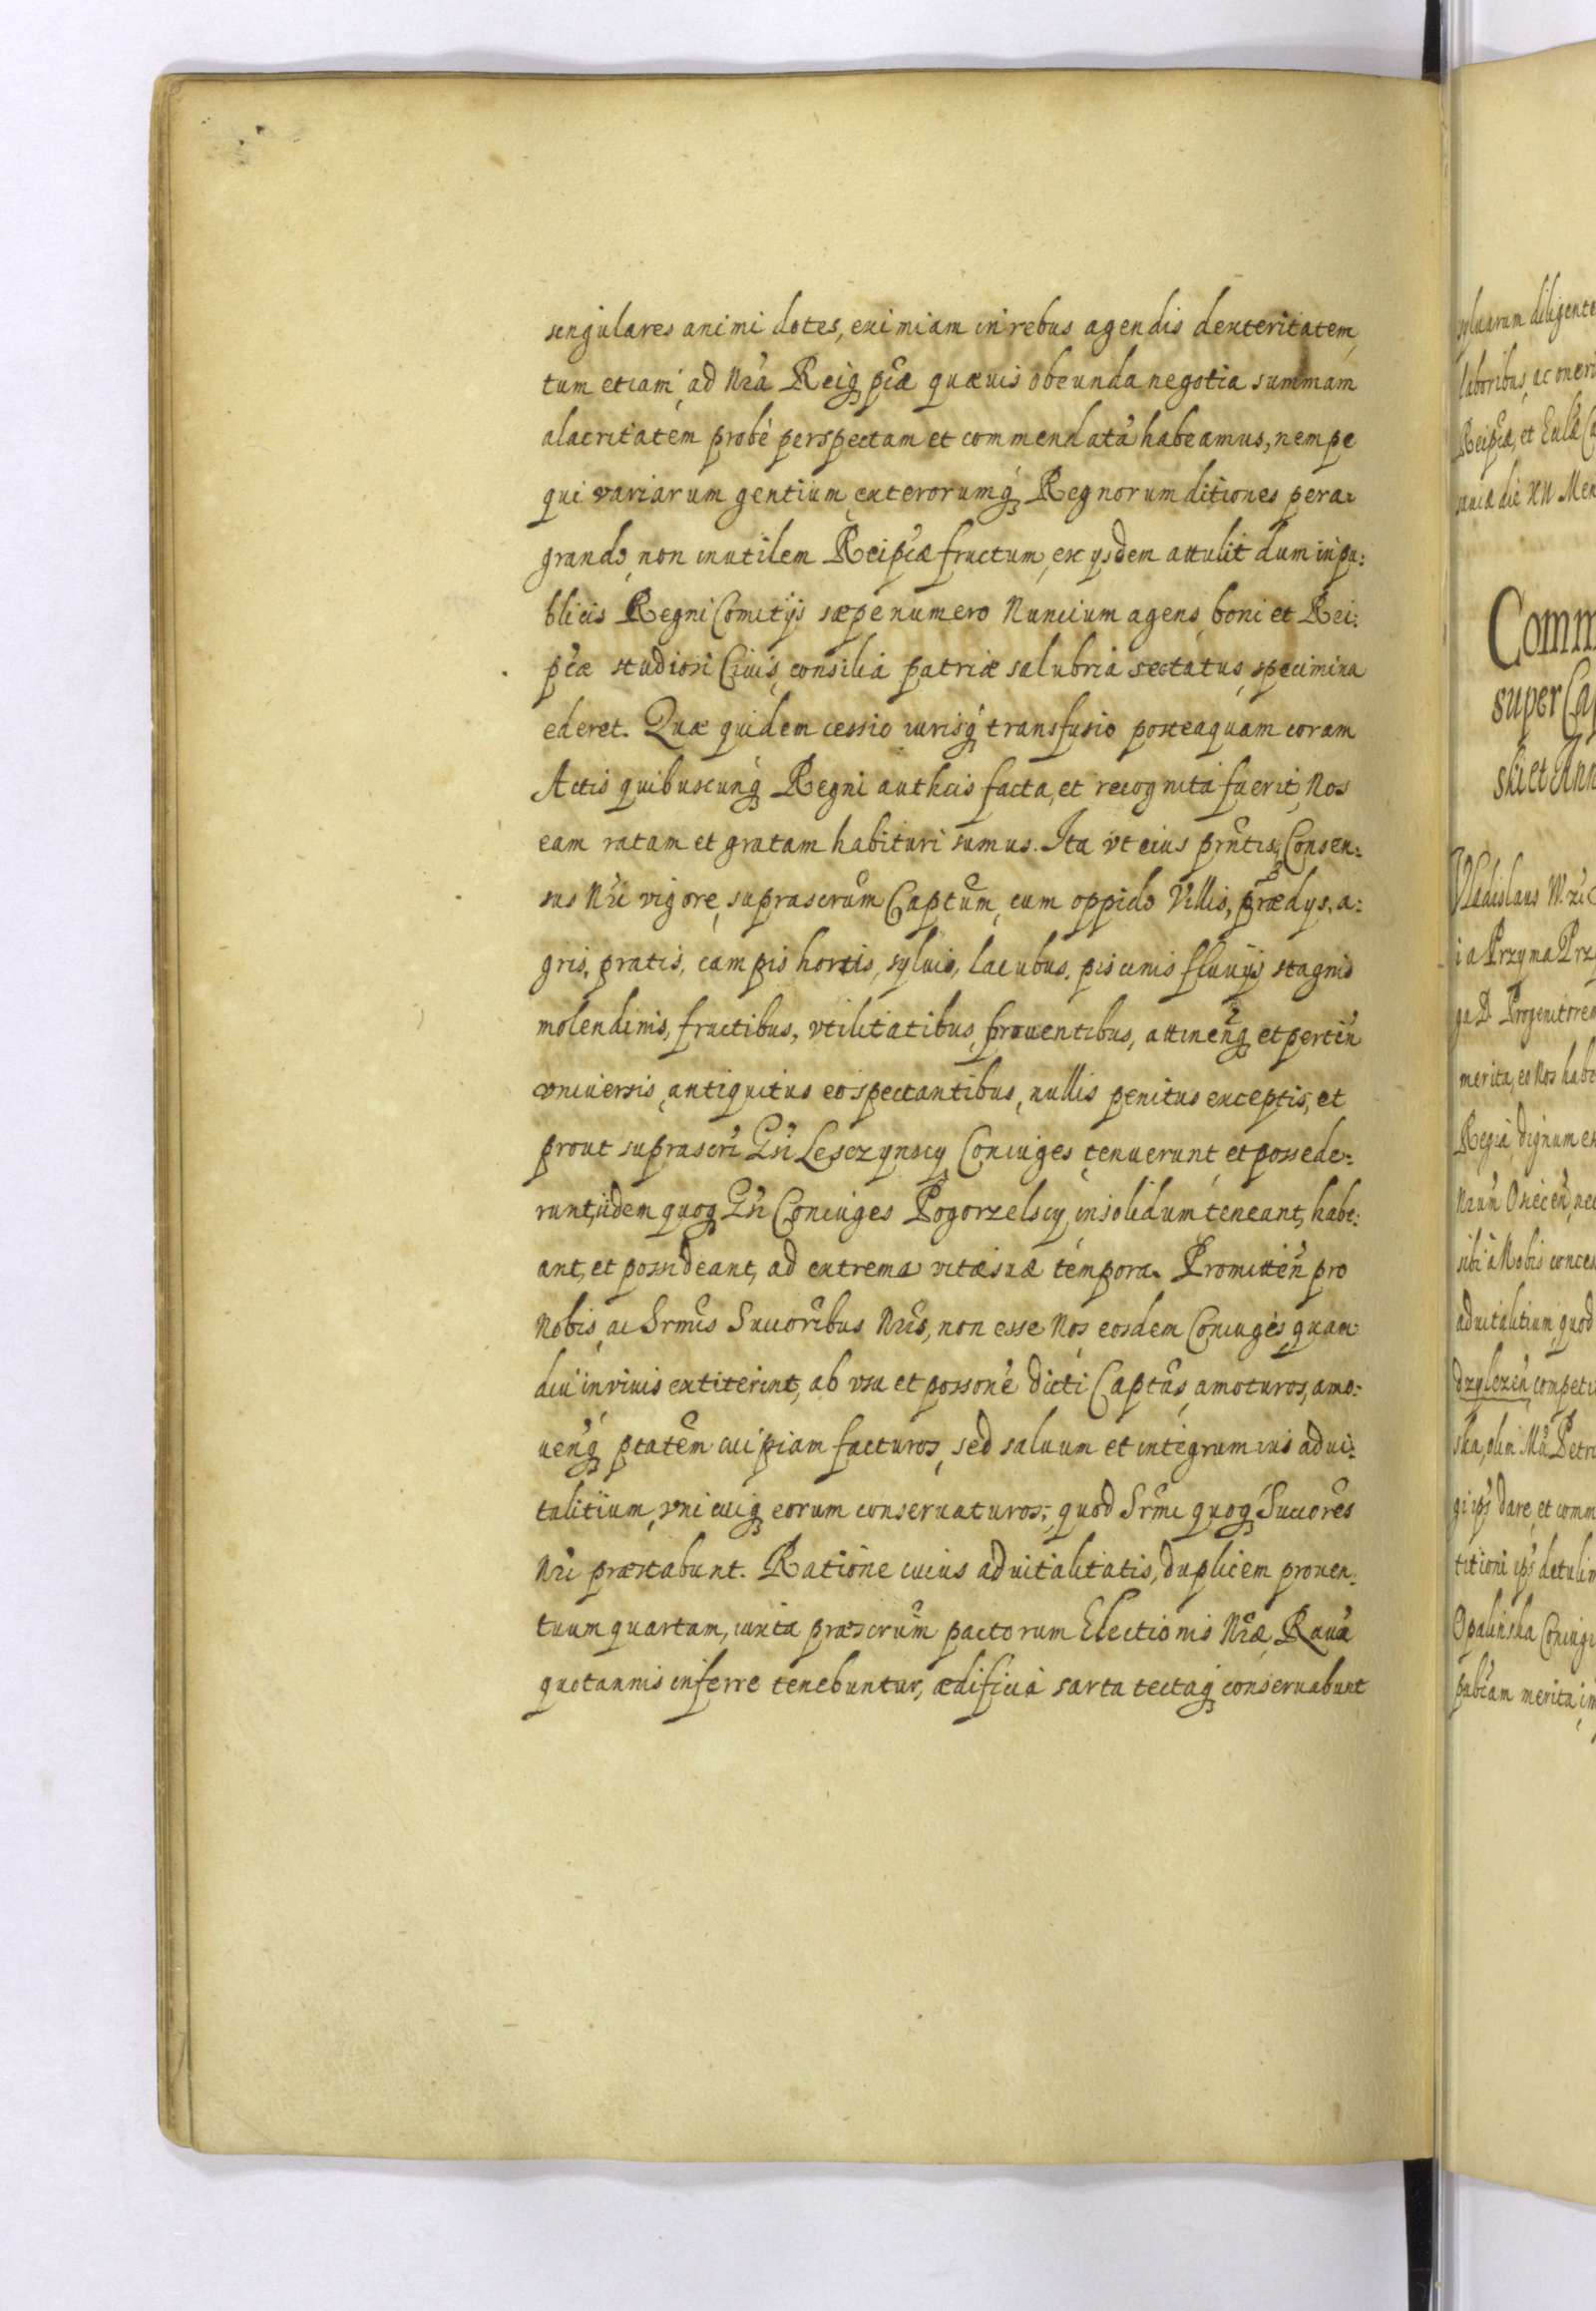 singulares animi dotes, eximiam in rebus agendis dexteritatem,
tum etiam, ad Nra Reiq́ pcæ quæuis obeunda negotia summam
alacritatem probè perspectam et commendatã habeamus, nempe
qui variarum gentium, exterorumq́ Regnorum ditiones pera-
grando, non inutilem Reipcæ fructum, ex ysdem attulit dum in pu:
blicis Regni Comitijs sæpenumero Nuncium agens, boni et Rei:
pcæ studiosi Ciuis, consilia patriæ salubria sectatus, specimina
ederet. Quæ quidem cessio iurisq́ transfusio posteaquam coram
Actis quibuscunq́ Regni authcis facta, et recognita fuerit, Nos
eam ratam et gratam habituri sumus. Ita vt eius prntis Consen:
sus Nri vigore, suprascrum Captum, cum oppido Villis, prædys, a:
gris, pratis, campis hortis, syluis, lacubus, piscinis fluuijs stagnis
molendinis, fructibus, vtilitatibus, prouentibus, attinenq́ et pertin
vniuersis, antiquitus eo spectantibus, nullis penitus exceptis, et
prout suprascri Gsi Lesczynscy Coniuges tenuerunt, et possede:
runt, iidem quoq́ Gsi Coniuges Pogorzelscy, in solidum teneant, habe:
ant, et possideant, ad extrema vitæ suæ tempora. Promitten pro
Nobis, ac Srmis Succoribus Nris, non esse Nos eosdem Coniuges, quam
diu in viuis extiterint, ab vsu et possone dicti Captus, amoturos, amo:
uenq́ ptatem cuipiam facturos, sed saluum et integrum ius adui:
talitium, vnicuiq́ eorum conseruaturos; quod Srmi quoq́ Succores
Nri præstabunt. Ratione cuius aduitalitatis, duplicem prouen:
tuum quartam, iuxta præscrum pactorum Electionis Nræ, Rauã
quotannis inferre tenebuntur, ædificia sarta tectaq́ conseruabunt
syluarum diligente
laboribus, ac oneri
Reipcæ, et
die XII Men
Comm
super Ca
ski et Ann
Vladislaus
ia Przyma
ga D. Progenitorem
merita, eo Nos habe
Regia dignum
sibi à Nobis conces
aduitalitium, quod
competi
ska, olim Petri
gi ips dare, et comm
titioni ips detulim
Opalinska Coniuge
pubcam merita, im